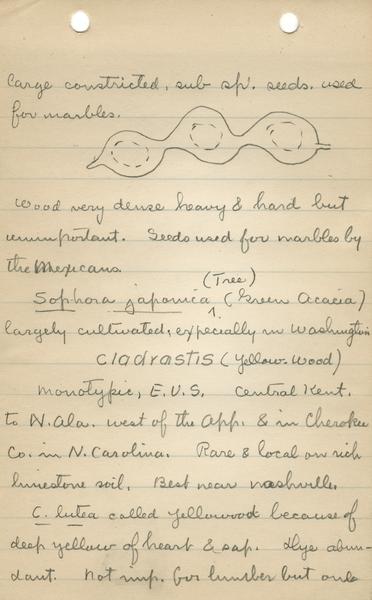 large constricted, sub sp. seeds. used
for marbles.
Wood very dense heavy & hard but
unimportant. Seeds used for marbles by
the Mexicans
(Tree)
Sophora japonica (Green Acacia)
largely cultivated, expecially in Washington
Cladrastis (Yellow-Wood)
Monotypic, E. U.S. Central Kent.
to N. Ala. west of the App. & in Cherokee
Co. in N. Carolina. Rare & local on rich
limestone soil. Best near nashville.
C. lutea called yellowood because of
deep yellow of heart & sap. Dye abun-
dant. Not imp. for lumber but